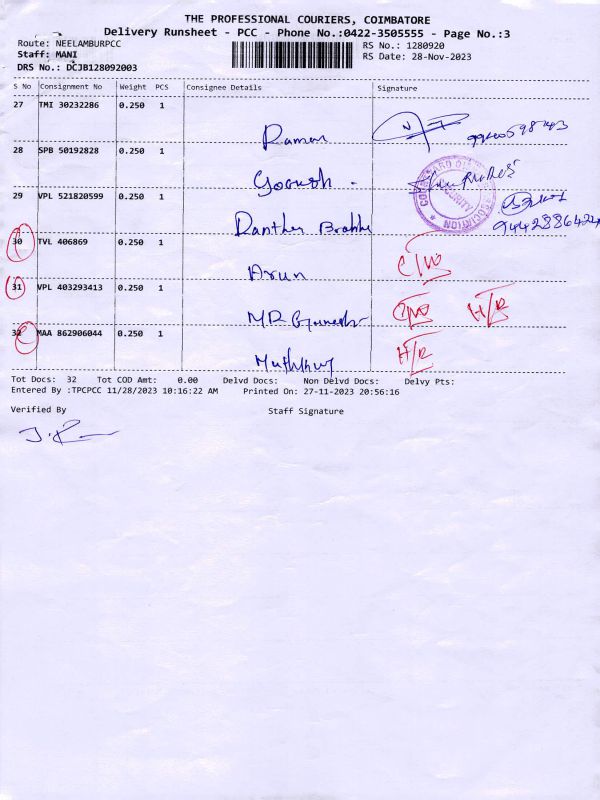 THE PROFESSIONAL COURIERS, COIMBATORE
Delivery Runsheet - PCC - Phone No.:0422-3505555 - Page No.:3
Route: NEELAMBURPCC
RS No.: 1280920
Staff: MANI
RS Date: 28-Nov-2023
DRS No.: DCJB128092003
S No Consignment No Weight PCS Consignee Details Signature
27 TMI 30232286 0.250 1
Raman
28 SPB 50192828 0.250 1
29 VPL 521820599 0.250 1
30 TVL 406869 0.250 1
Arun
31 VPL 403293413 0.250 1
32 MAA 862906044 0.250 1
Tot Docs: 32 Tot COD Amt: 0.00 Delvd Docs: Non Delvd Docs: Delvy Pts:
Entered By :TPCPCC 11/28/2023 10:16:22 AM Printed On: 27-11-2023 20:56:16
Verified By Staff Signature